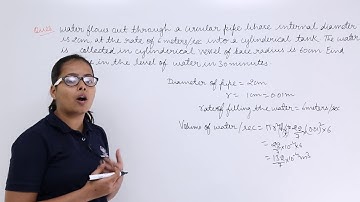 Ques: water flows out through a circular pipe whose internal diameter
is 2cm, at the rate of 6 meters/sec into a cylinderical tank. The water
is collected in cylinderical vessel of base radius is 60cm. Find
in the level of water in 30 minutes.
Diameter of pipe = 2cm
r = 1cm = 0.01m
rate of filling the water = 6 meters/sec
Volume of water/sec = πr²h = 22/7 (0.01)² × 6
= 22/7 × 10⁻⁴ × 6
= 132/7 × 10⁻⁴ m³